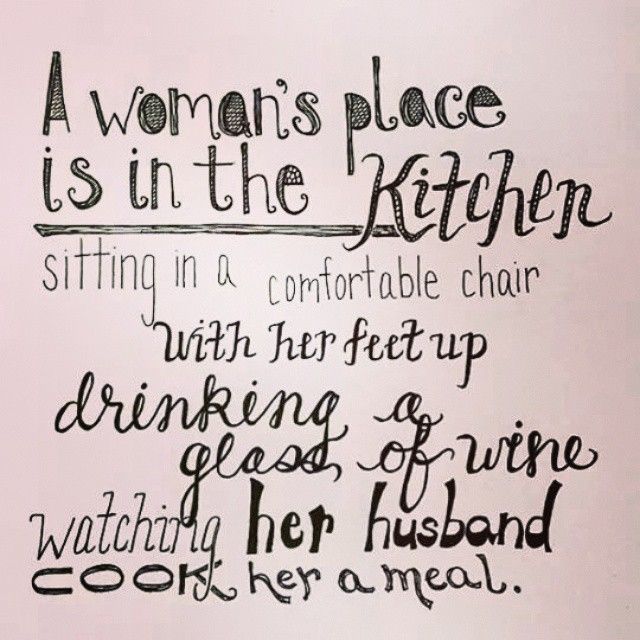 A woman's place
is in the Kitchen
sitting in a comfortable chair
with her feet up
drinking a
glass of wine
watching her husband
cook her a meal.